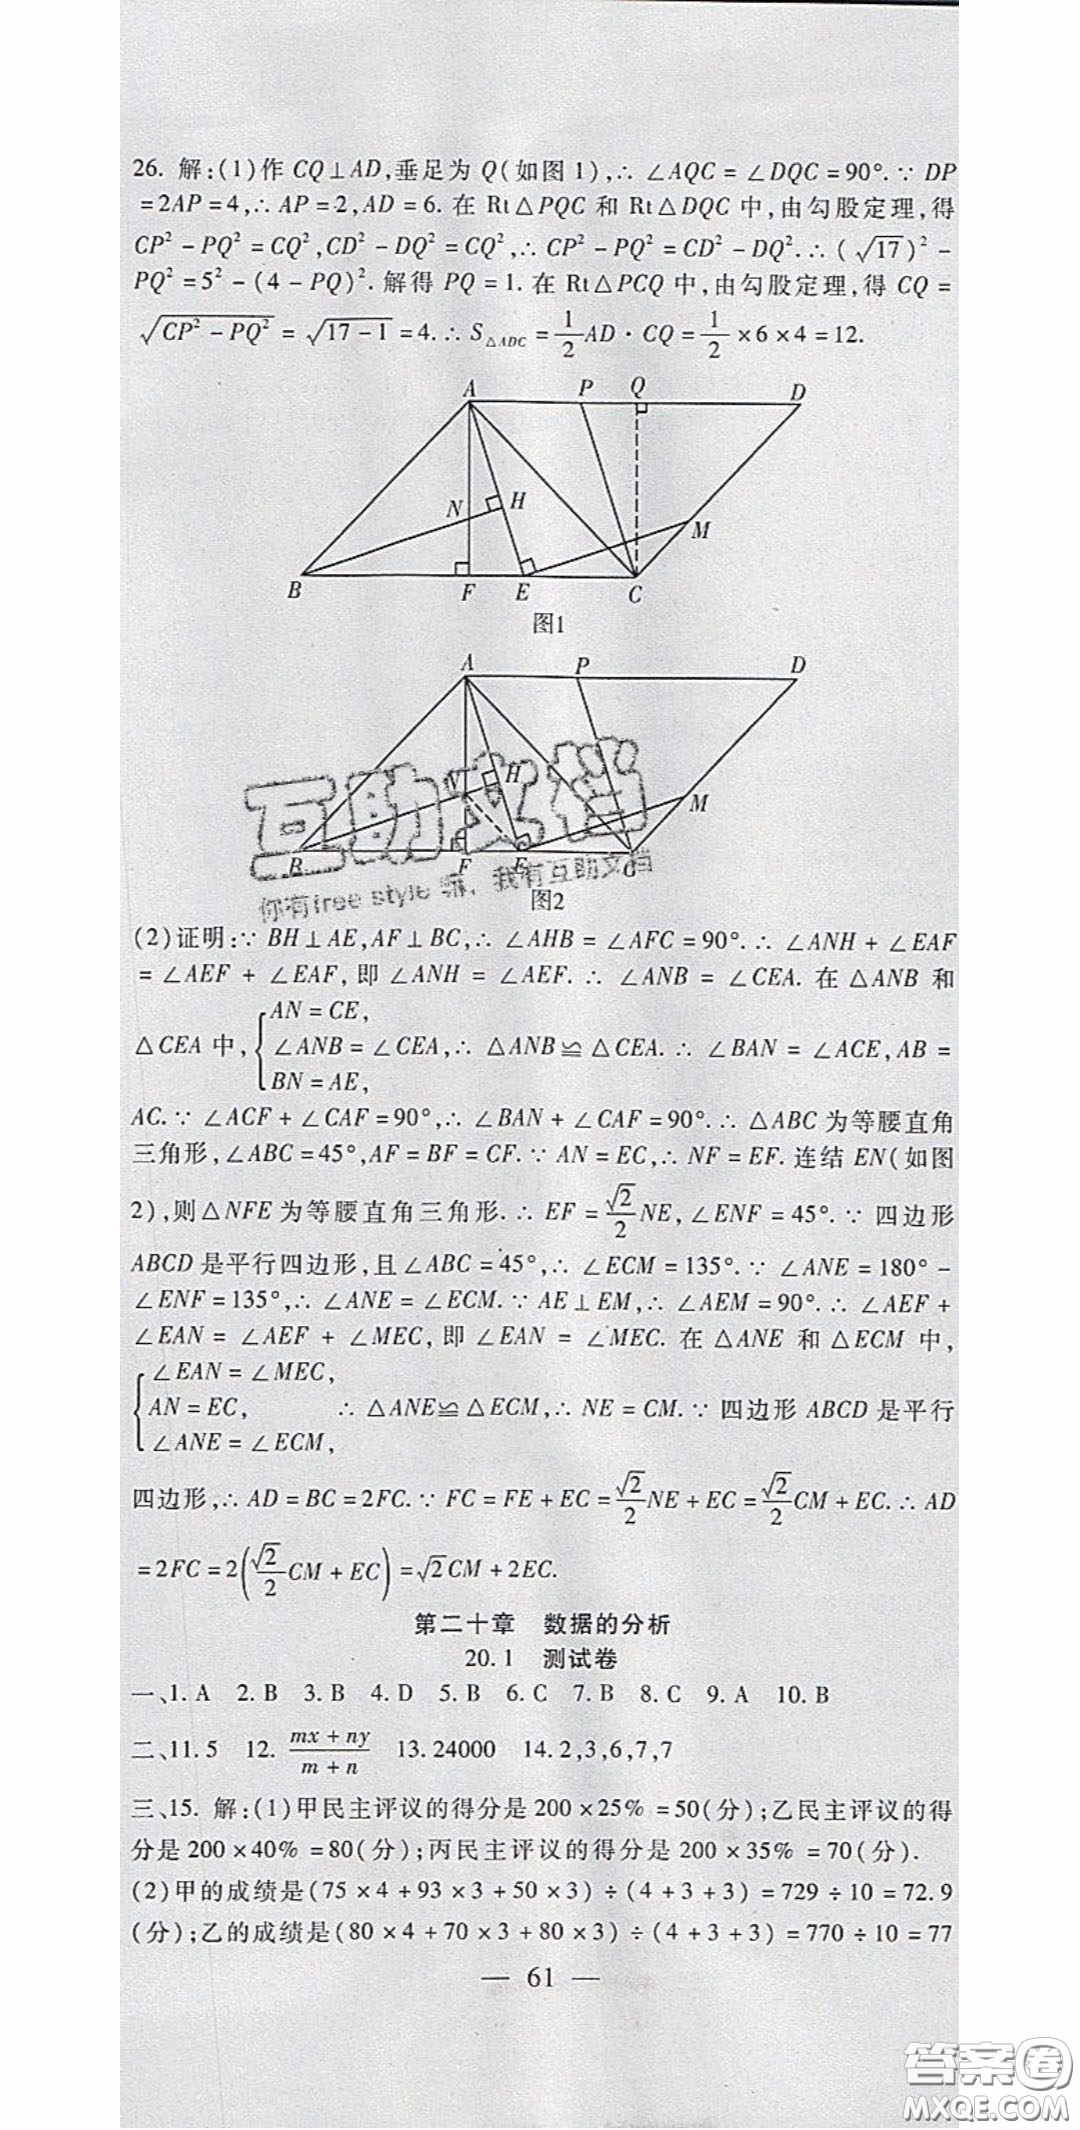 26. 解:(1)作 CQ⊥AD,垂足为 Q(如图 1),∴ ∠AQC = ∠DQC = 90°. ∵ DP
= 2AP = 4,∴ AP = 2,AD = 6. 在 Rt△PQC 和 Rt△DQC 中,由勾股定理,得
CP² - PQ² = CQ²,CD² - DQ² = CQ²,∴ CP² - PQ² = CD² - DQ². ∴ (√17)² -
PQ² = 5² - (4 - PQ)². 解得 PQ = 1. 在 Rt△PCQ 中,由勾股定理,得 CQ =
√(CP² - PQ²) = √(17 - 1) = 4. ∴ S△ADC = 1/2 AD · CQ = 1/2 × 6 × 4 = 12.
A P Q D
N H M
B F E C
图1
A P D
H M
B F E C
图2
互助文档
你有free style 嘛，我有互助文档
(2)证明:∵ BH⊥AE,AF⊥BC,∴ ∠AHB = ∠AFC = 90°. ∴ ∠ANH + ∠EAF
= ∠AEF + ∠EAF,即 ∠ANH = ∠AEF. ∴ ∠ANB = ∠CEA. 在 △ANB 和
AN = CE,
△CEA 中, ∠ANB = ∠CEA,∴ △ANB≌△CEA. ∴ ∠BAN = ∠ACE,AB =
BN = AE,
AC. ∵ ∠ACF + ∠CAF = 90°,∴ ∠BAN + ∠CAF = 90°. ∴ △ABC 为等腰直角
三角形,∠ABC = 45°,AF = BF = CF. ∵ AN = EC,∴ NF = EF. 连结 EN(如图
2),则△NFE 为等腰直角三角形. ∴ EF = √2/2 NE,∠ENF = 45°. ∵ 四边形
ABCD 是平行四边形,且∠ABC = 45°,∴ ∠ECM = 135°. ∵ ∠ANE = 180° -
∠ENF = 135°,∴ ∠ANE = ∠ECM. ∵ AE⊥EM,∴ ∠AEM = 90°. ∴ ∠AEF +
∠EAN = ∠AEF + ∠MEC,即 ∠EAN = ∠MEC. 在 △ANE 和 △ECM 中,
∠EAN = ∠MEC,
AN = EC, ∴ △ANE≌△ECM,∴ NE = CM. ∵ 四边形 ABCD 是平行
∠ANE = ∠ECM,
四边形,∴ AD = BC = 2FC. ∵ FC = FE + EC = √2/2 NE + EC = √2/2 CM + EC. ∴ AD
= 2FC = 2(√2/2 CM + EC) = √2CM + 2EC.
第二十章 数据的分析
20.1 测试卷
一、1. A 2. B 3. B 4. D 5. B 6. C 7. B 8. C 9. A 10. B
二、11. 5 12. (mx + ny)/(m + n) 13. 24000 14. 2,3,6,7,7
三、15. 解:(1)甲民主评议的得分是 200 × 25% = 50(分);乙民主评议的得
分是 200 × 40% = 80(分);丙民主评议的得分是 200 × 35% = 70(分).
(2)甲的成绩是(75 × 4 + 93 × 3 + 50 × 3) ÷ (4 + 3 + 3) = 729 ÷ 10 = 72.9
(分);乙的成绩是(80 × 4 + 70 × 3 + 80 × 3) ÷ (4 + 3 + 3) = 770 ÷ 10 = 77
— 61 —
答案圈
MXQE.COM